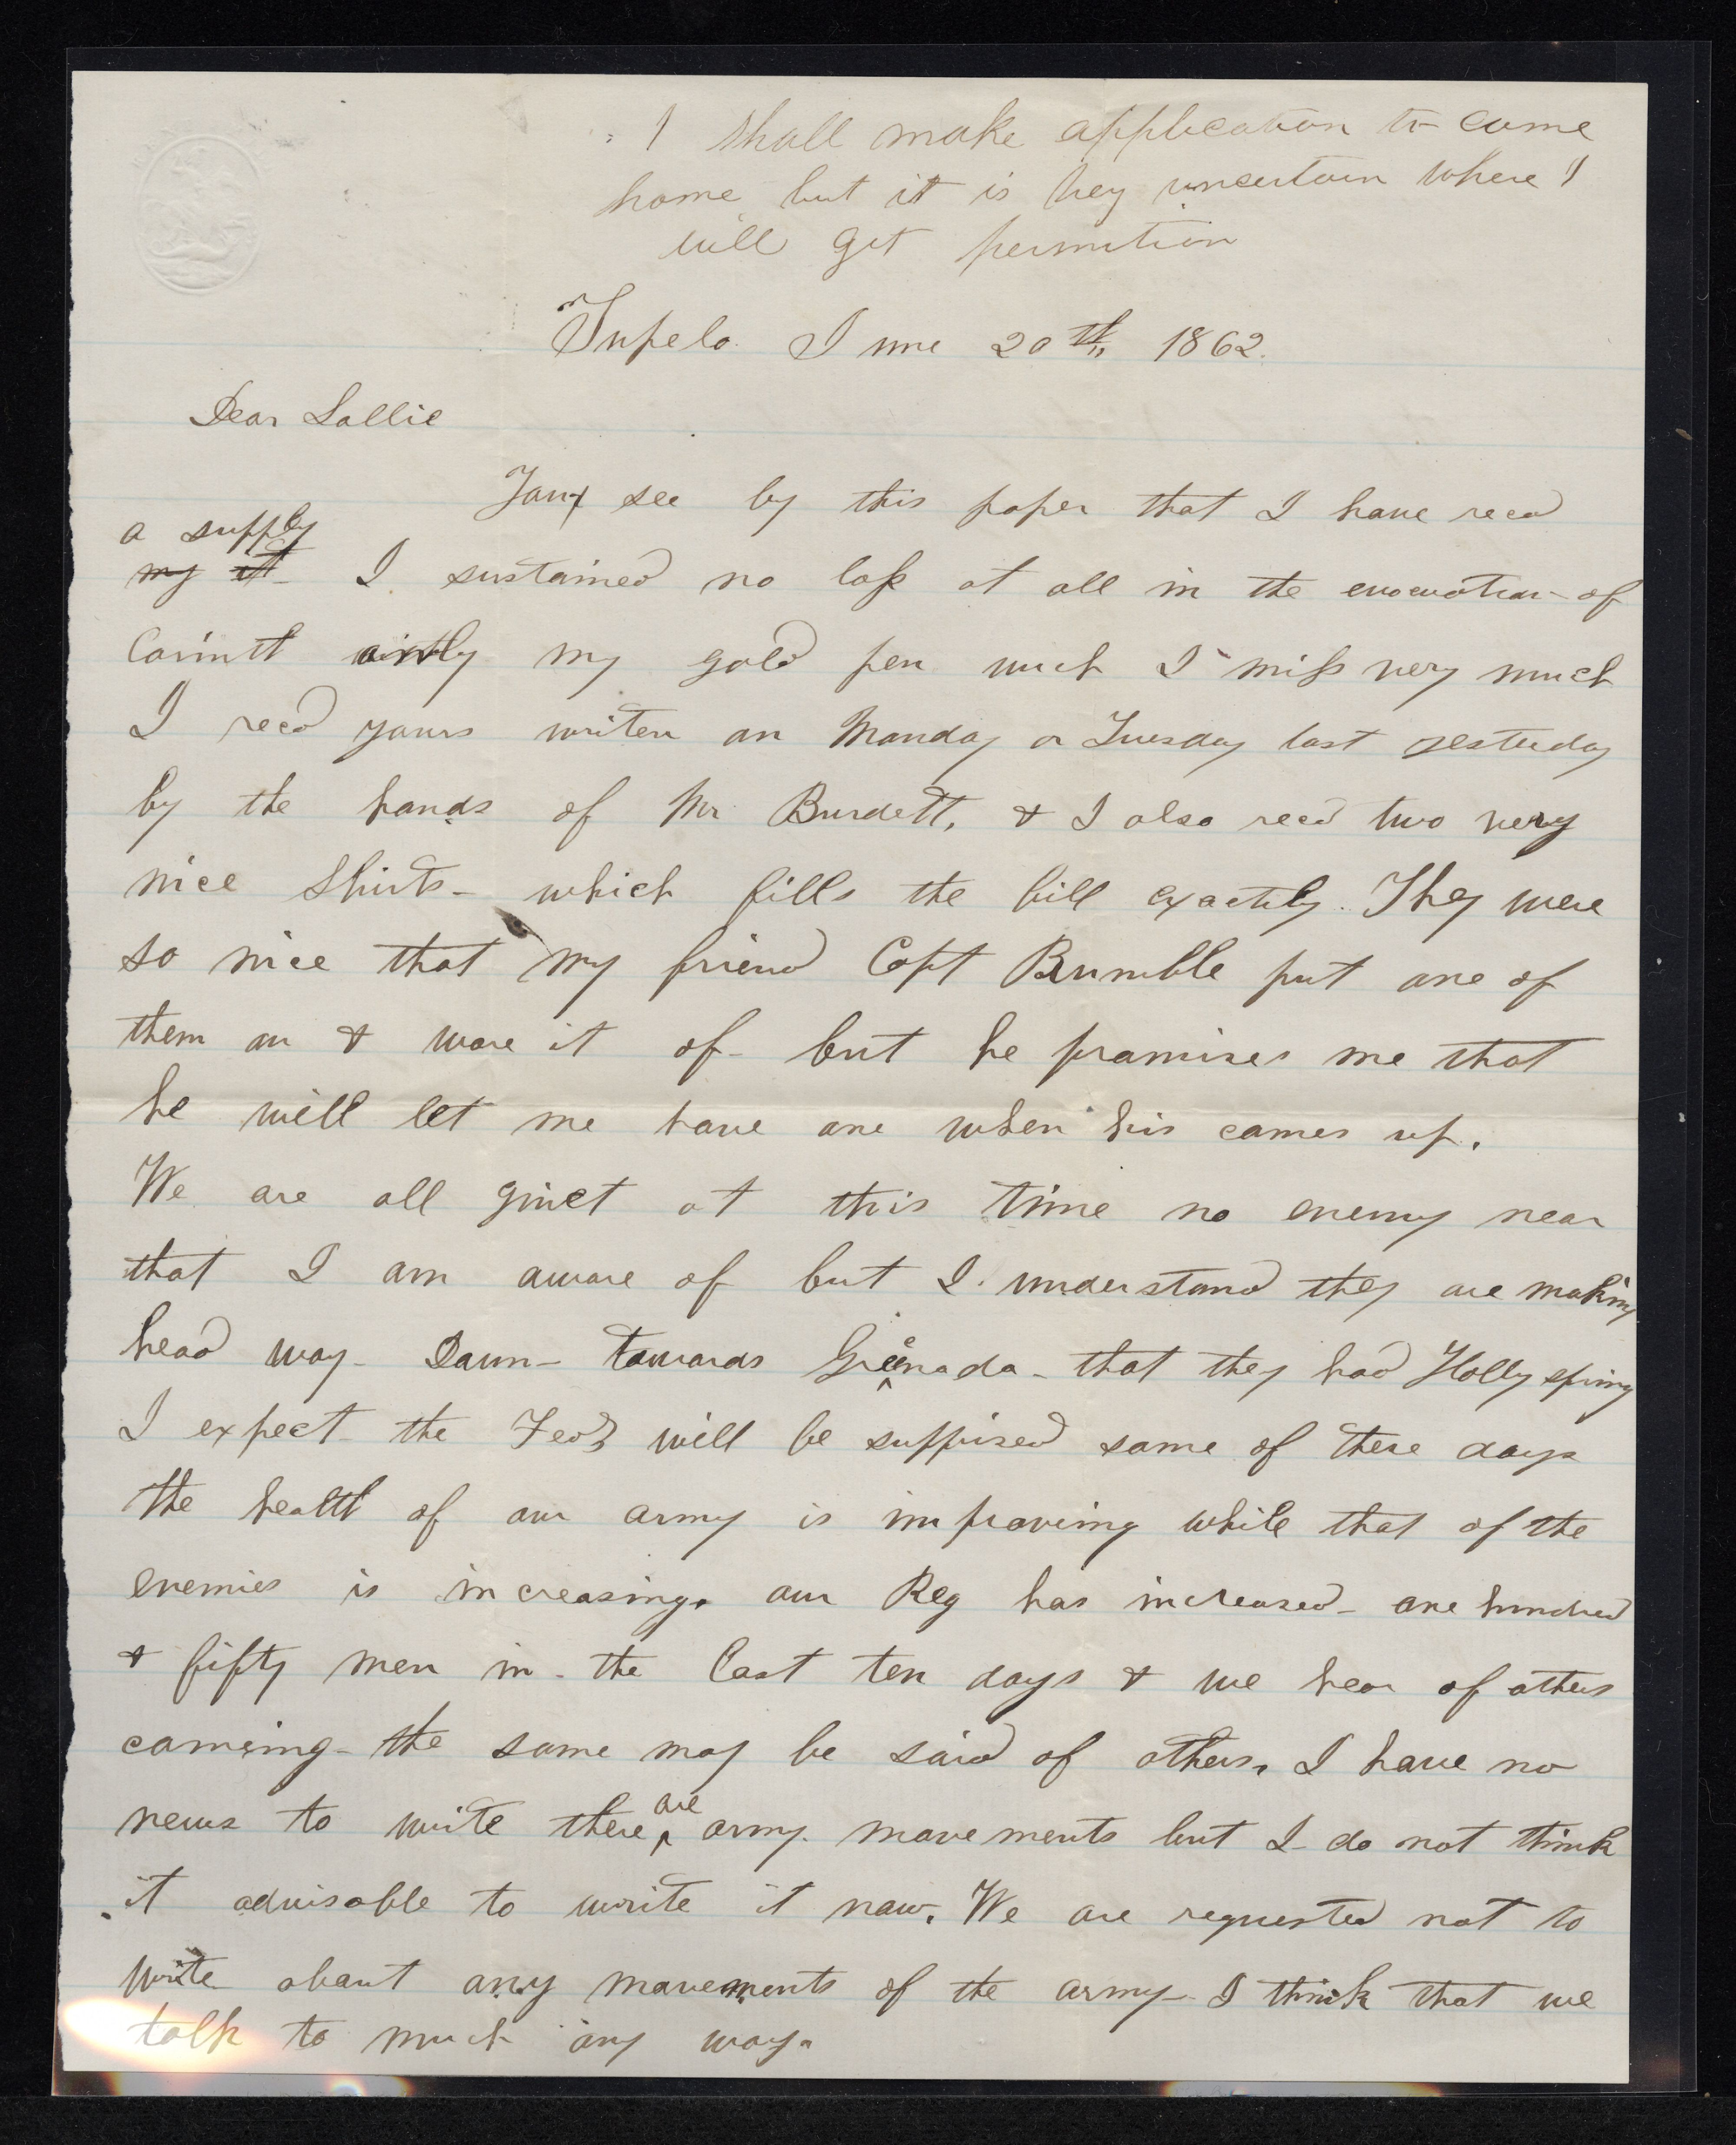 I shall make application to come
home but it is vey uncertain where I
will get permition
Tupelo June 20th, 1862.
Dear Sallie
You see by this paper that I have recd
a supply
my it I sustained no loss at all in the evacuation of
Corinth only my gold pen wich I miss very much
I recd yours writen on Monday or Tuesday last yesterday
by the hands of Mr Burdett, & I also recd two very
nice Shirts - which fills the bill exactly. They were
so nice that my friend Capt Brumble put one of
them on & wore it of - but he promises me that
he will let me have one when his comes up.
We are all quiet at this time no enemy near
that I am aware of but I understand they are making
head way - Down - towards Grenada - that they had Holly spring
I expect the Feds will be suppised some of these days
the health of our army is improveing while that of the
enemies is increasing. our Reg has increased - one hundred
& fifty men in - the last ten days & we hear of others
comeing - the same may be said of others. I have no
news to write there are army movements but I do not think
it advisable to write it now. We are requested not to
write about any movements of the army - I think that we
talk to much any way.